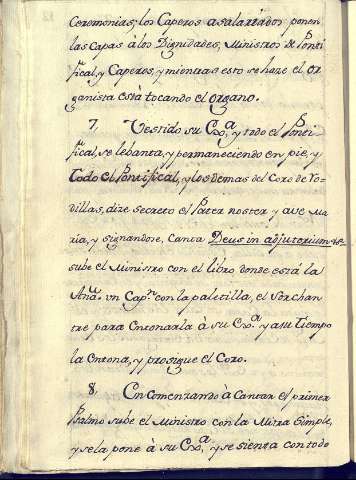 Ceremonias; los Caperos asalariados ponen
las Capas â los Dignidades, Ministros de Ponti
fical, y Caperos, y mientras esto se haze el or
ganista está tocando el organo.
7. Vestido su Exª. y todo el Ponti
fical, se lebanta, y permaneciendo en pie, y
todo el Pontifical, y los demas del Coro de Ro-
dillas, dize secreto el Pater noster y ave Ma
ria, y signandose, Canta Deus in adjutorium &ª
sube el Ministro con el libro donde está la
Añª. vn Capⁿ. con la paletilla, el Sochan
tre para Entonarla à su Exª. y a su tiempo
la Entona, y prosigue el Coro.
8. En Comenzando à Cantar el primer
Psalmo sube el Ministro con la Mitra Simple,
y se la pone à su Exª, y se sienta con todo